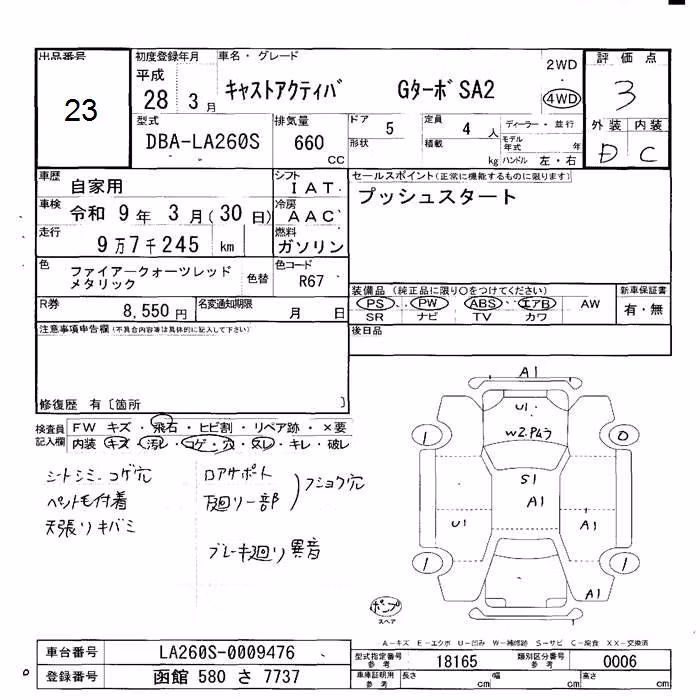 出品番号
23
初度登録年月
平成
28 3 月
車名・グレード
キャストアクティバ GターボSA2
2WD
4WD
評価点
3
外装 内装
D C
型式
DBA-LA260S
排気量
660
CC
ドア
5
形状
定員
4 人
積載
kg
ディーラー・並行
モデル年式 年
ハンドル 左・右
車歴
自家用
シフト
IAT
車検
令和 9 年 3 月(30日)
冷房
AAC
走行
9 万 7 千 245 km
燃料
ガソリン
色
ファイアークォーツレッド
メタリック
色替
色コード
R67
R券
8,550円
名変通知期限
月 日
セールスポイント(正常に機能するものに限ります)
プッシュスタート
装備品(純正品に限り○をつけてください)
PS PW ABS エアB AW
SR ナビ TV カワ
新車保証書
有・無
後日品
注意事項申告欄(不具合内容等は具体的に記入して下さい)
修復歴 有〔箇所 〕
検査員
記入欄
FW キズ・飛石・ヒビ割・リペア跡・×要
内装 キズ・汚レ・コゲ・穴・スレ・キレ・破レ
シートシミ.コゲ穴
ペット毛付着
天張りキバミ
ロアサポート
下廻り一部
フショク穴
ブレーキ廻り異音
A1
U1
W2.Pムラ
1
0
S1
A1
U1
A1
1
1
A1
ポンプ
スペア
A-キズ E-エクボ U-凹み W-補修跡 S-サビ C-腐食 XX-交換済
車台番号
LA260S-0009476
登録番号
函館 580 さ 7737
型式指定番号
参考
18165
類別区分番号
参考
0006
車庫証明用
参考
長さ cm
幅 cm
高さ cm